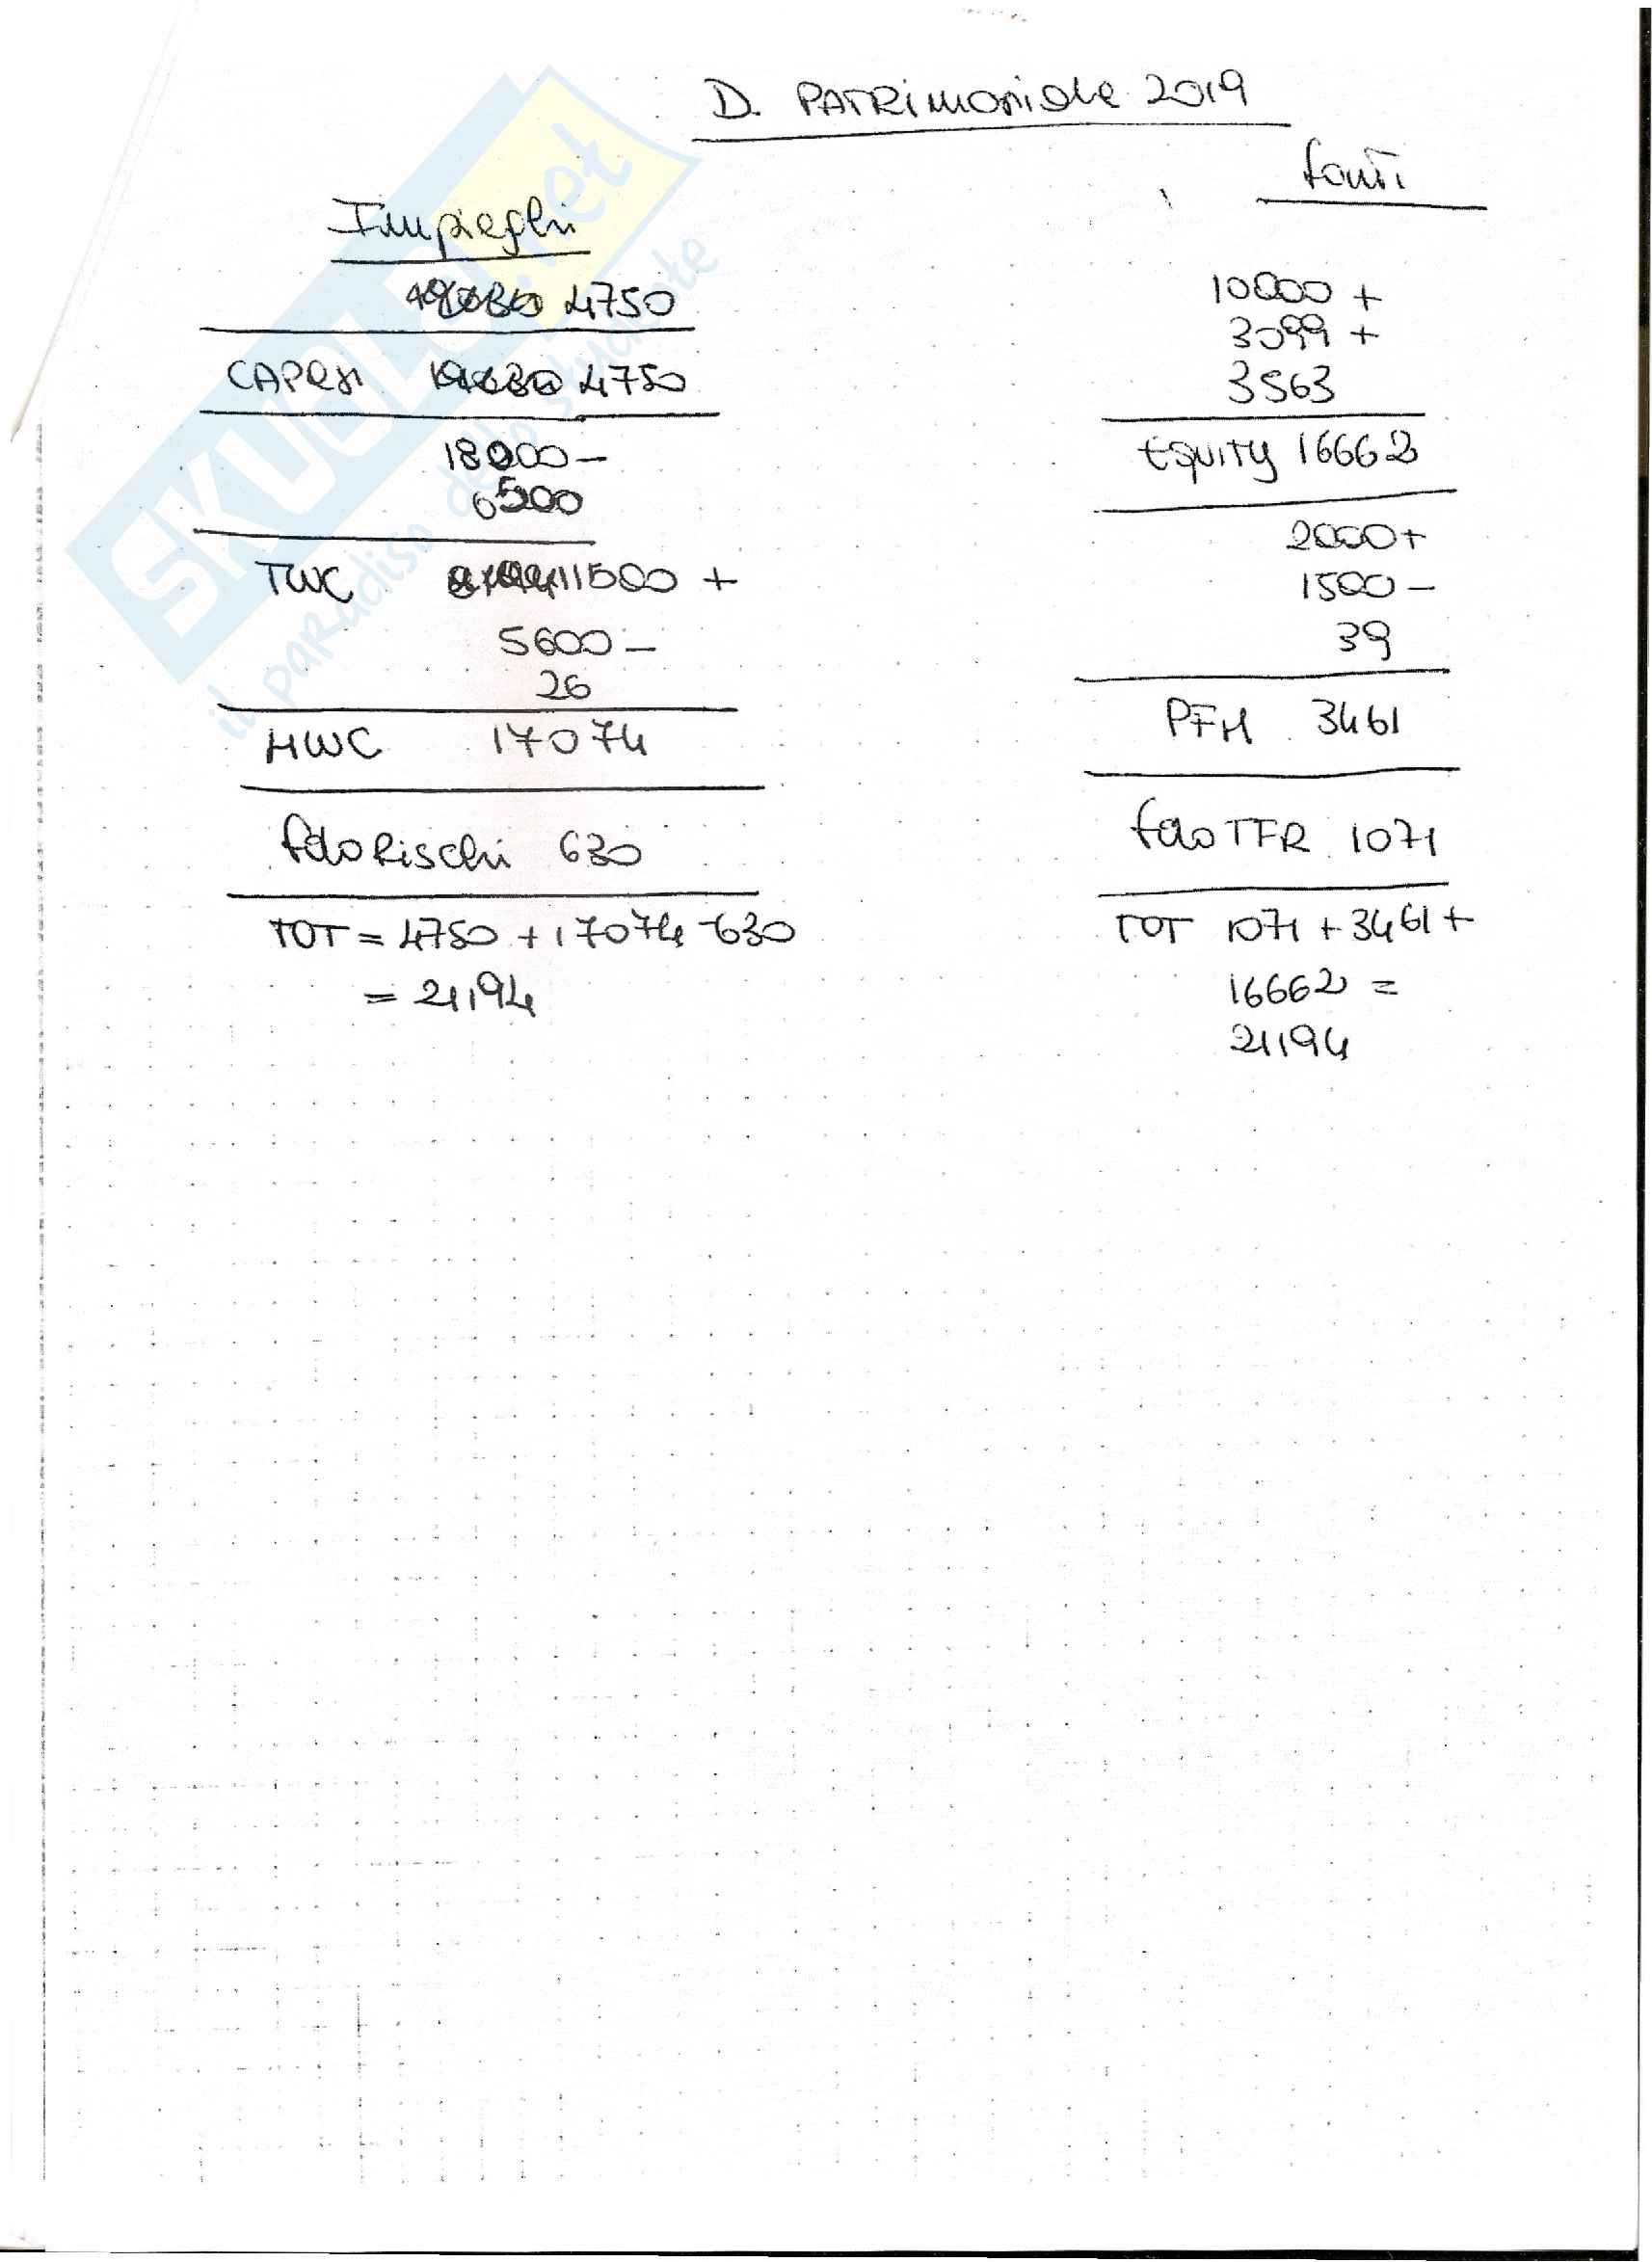 D. PATRIMONIALE 2019
Impieghi
4750
CAPEX 4750
18000 -
6500
TWC 11500 +
5600 -
26
NWC 17074
fdo Rischi 630
TOT = 4750 + 17074 - 630
= 21194
fonti
10000 +
3099 +
3563
EQUITY 16662
2000 +
1500 -
39
PFN 3461
fdo TFR 1071
TOT 1071 + 3461 +
16662 =
21194
SKUOLA.net
il paradiso dello studente